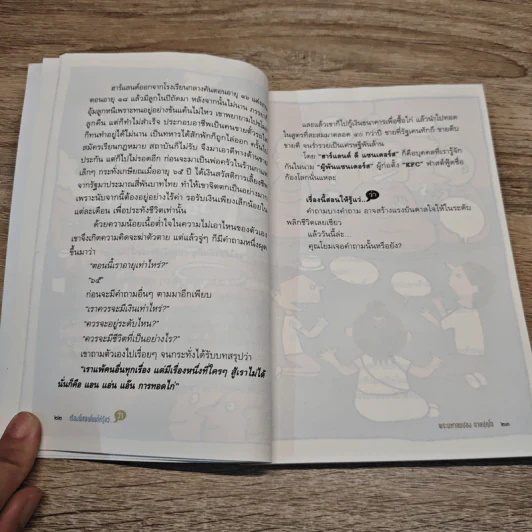 ฮาร์แลนด์ออกจากโรงเรียนกลางคันตอนอายุ ๑๖
ตอนอายุ ๑๘ แล้วมีลูกในปีถัดมา หลังจากนั้นไม่นาน ภรรยาก็
อุ้มลูกหนีเพราะทนอยู่อย่างขัดแค้นไม่ไหว เขาพยายามไปขโมย
ลูกคืน แต่ก็ทำไม่สำเร็จ ประกอบอาชีพเป็นคนขายตั๋วรถไฟ
ก็ทนทำอยู่ได้ไม่นาน เป็นทหารได้สักพักก็ถูกไล่ออก ครั้น
สมัครเรียนกฎหมาย สถาบันก็ไม่รับ จึงมาเอาดีทางด้านขาย
ประกัน แต่ก็ไปไม่รอดอีก ก่อนจะมาเป็นพ่อครัวในร้านกาแฟ
เล็กๆ กระทั่งเกษียณเมื่ออายุ ๖๕ ปี ได้เงินสวัสดิการเลี้ยงชีพ
จากรัฐมาประมาณสี่พันบาทไทย ทำให้เขาจิตตกเป็นอย่างมาก
เพราะนับจากนี้ต้องอยู่อย่างไร้ค่า รอรับเงินเพียงเล็กน้อยใน
แต่ละเดือน เพื่อประทังชีวิตเท่านั้น
ด้วยความน้อยเนื้อต่ำใจในความไม่เอาไหนของตัวเอง
เขาจึงเกิดความคิดจะฆ่าตัวตาย แต่แล้วจู่ๆ ก็มีคำถามหนึ่งผุด
ขึ้นมาว่า
“ตอนนี้เราอายุเท่าไหร่?”
“๖๕”
ก่อนจะมีคำถามอื่นๆ ตามมาอีกเพียบ
“เราควรจะมีเงินเท่าไหร่?”
“ควรจะอยู่ระดับไหน?”
“ควรจะมีชีวิตที่เป็นอย่างไร?”
เขาถามตัวเองไปเรื่อยๆ จนกระทั่งได้รับบทสรุปว่า
“เราแพ้คนอื่นทุกเรื่อง แต่มีเรื่องหนึ่งที่ใครๆ สู้เราไม่ได้
นั่นก็คือ แอน แอ่น แอ๊น การทอดไก่”
๒๒
ว้า
และแล้วเขาก็ไปกู้เงินธนาคารเพื่อซื้อไก่ แล้วนำไปทอด
ในสูตรที่สะสมมาตลอด ๔๐ กว่าปี ขายที่รัฐเคนทักกี ขายดิบ
ขายดี จนร่ำรวยเป็นเศรษฐีพันล้าน
โดย “ฮาร์แลนด์ ดี แซนเดอร์ส” ก็คือบุคคลที่เรารู้จัก
กันในนาม “ผู้พันแซนเดอร์ส” ผู้ก่อตั้ง “KFC” ฟาสต์ฟู้ดชื่อ
ก้องโลกนั่นแหละ
เรื่องนี้สอนให้รู้แว้.. ว้า
คำถามบางคำถาม อาจสร้างแรงบันดาลใจให้ในระดับ
พลิกชีวิตเลยเชียว
แล้ววันนี้ล่ะ...
คุณโยมเจอคำถามนั้นหรือยัง?
พระมหาสมปอง ตาลปุตฺโต ๒๓